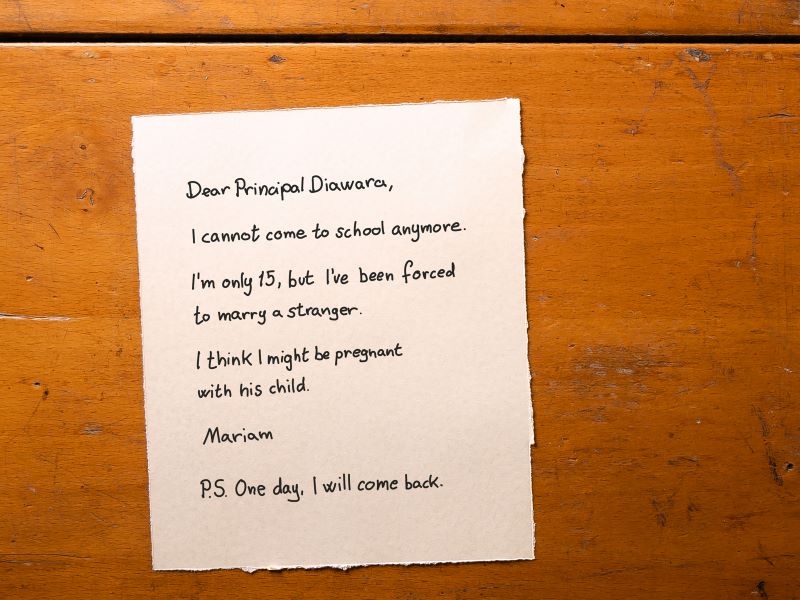 Dear Principal Diawara,
I cannot come to school anymore.
I'm only 15, but I've been forced
to marry a stranger.
I think I might be pregnant
with his child.
Mariam
P.S. One day, I will come back.